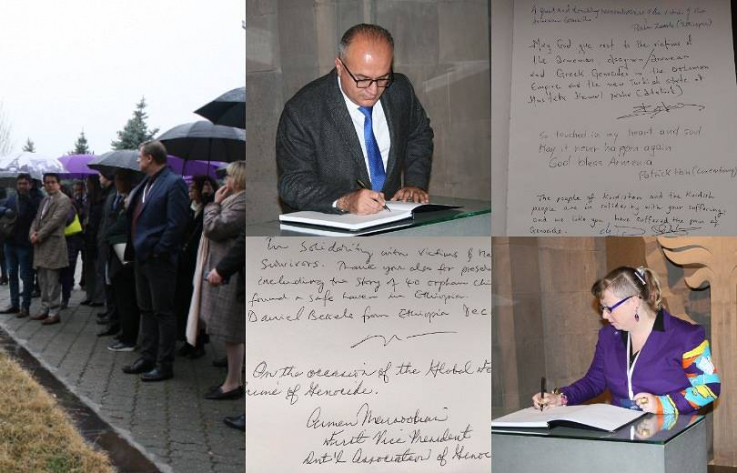 A great and touching remembrance of the victims of the
Armenian Genocide
May God give rest to the victims of
the Armenian Assyrian/Aramean
and Greek Genocides in the Ottoman
Empire and the new Turkish state of
Mustafa Kemal pasha (Ataturk)
So touched in my heart and soul
May it never happen again
God bless Armenia
Patrick (Luxembourg)
The people of Kurdistan and the Kurdish
people are in solidarity with your suffering
and we like you have suffered the pain of
Genocide.
In Solidarity with victims & the
Survivors. Thank you also for
including the story of 40 orphan
found a safe haven in Ethiopia.
Daniel Bekele from Ethiopia Dec
On the occasion of the Global
of Genocide.
Armen Marsoobian
First Vice President
Int'l Association of Genoc